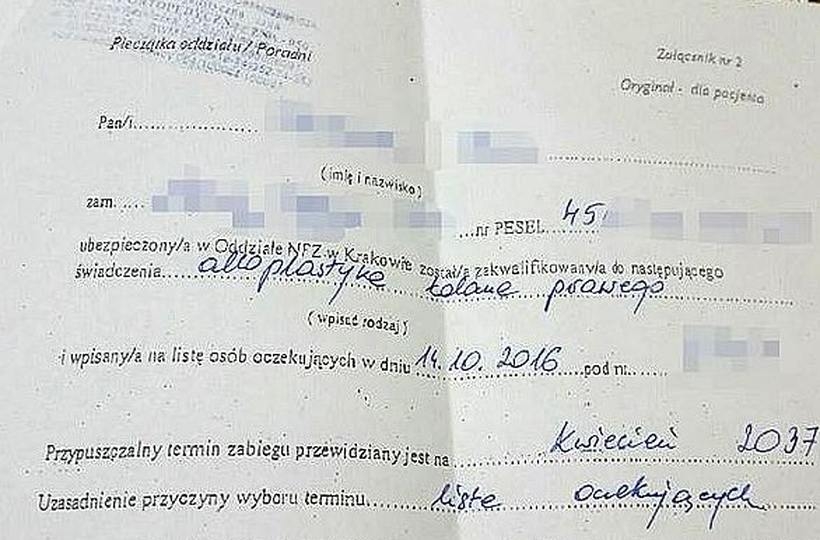 Pieczątka oddziału / Poradni
Załącznik nr 2
Oryginał - dla pacjenta
Pan/i
(imię i nazwisko)
zam. nr PESEL 45
ubezpieczony/a w Oddziale NFZ w Krakowie został/a zakwalifikowany/a do następującego
świadczenia alloplastyka kolana prawego
(wpisać rodzaj)
i wpisany/a na listę osób oczekujących w dniu 14.10.2016 pod nr
Przypuszczalny termin zabiegu przewidziany jest na Kwiecień 2037
Uzasadnienie przyczyny wyboru terminu lista oczekujących